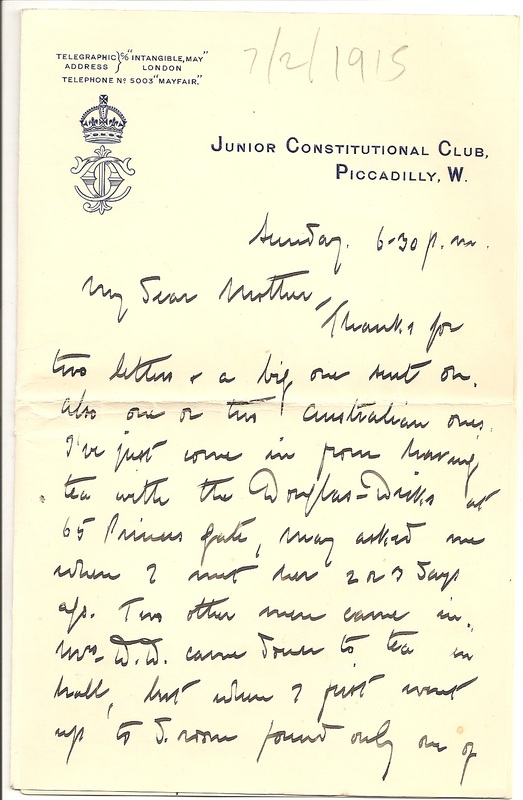 TELEGRAPHIC } c/o "INTANGIBLE, MAY"
ADDRESS } LONDON
TELEPHONE No 5003 "MAYFAIR."
7/2/1915
JUNIOR CONSTITUTIONAL CLUB,
PICCADILLY, W.
Sunday. 6-30 p.m.
My Dear Mother,
Thanks for
two letters & a big one sent on.
also one or two Australian ones.
I've just come in from having
tea with the Douglas-Dicks at
65 Princes Gate, May asked me
when I met her 2 or 3 days
ago. Two other men came in.
Mrs D.D. came down to tea in
hall, but when I first went
up to D.room found only one of